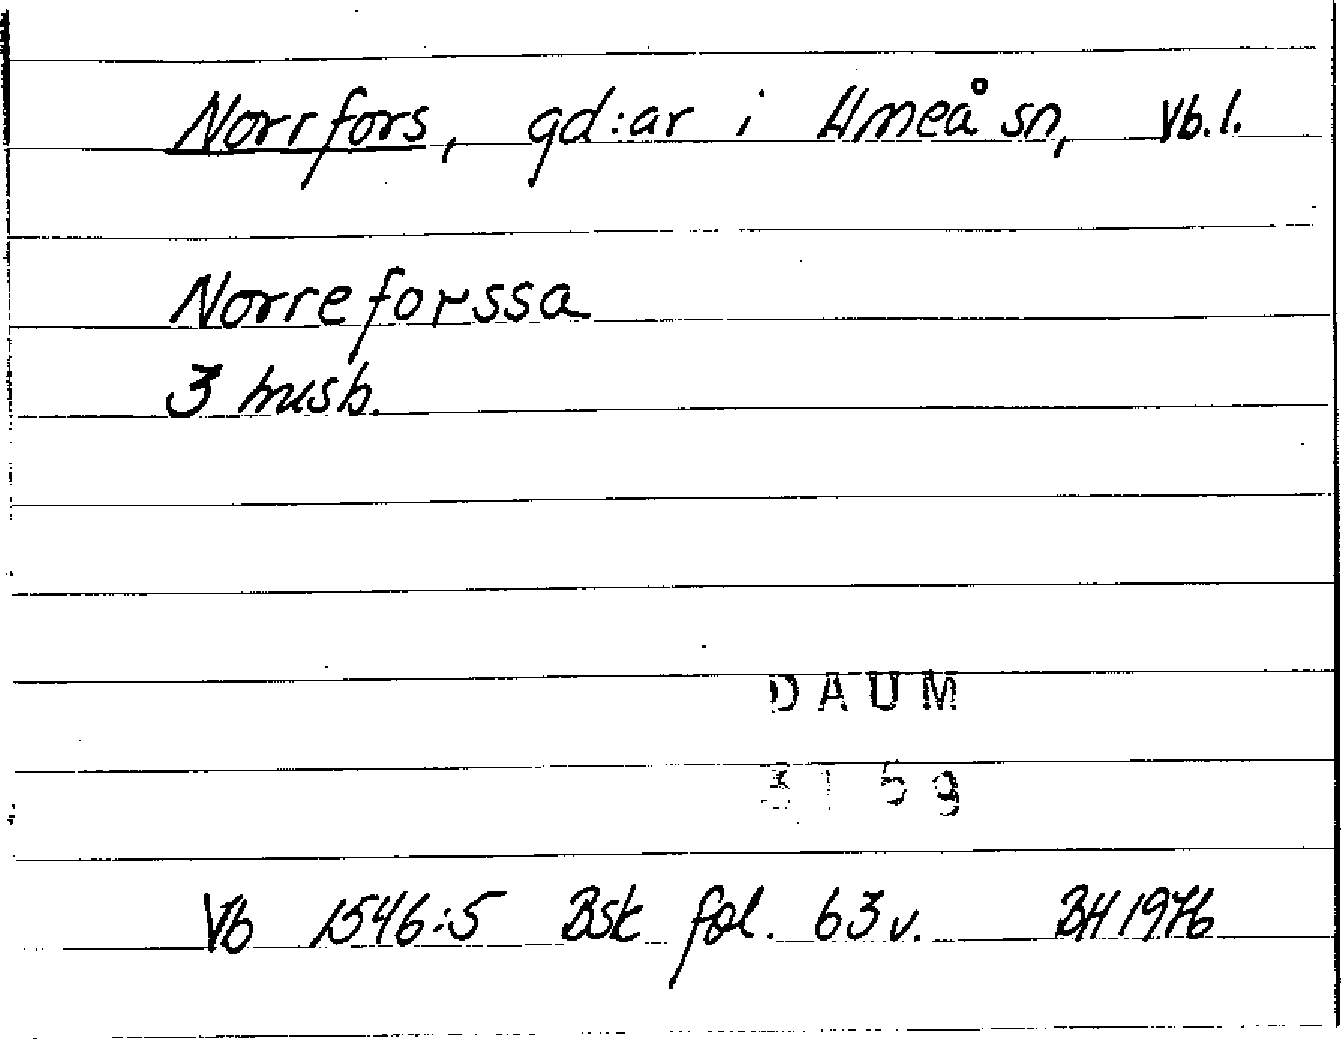 Norrfors, gd:ar i Umeå sn, Vb.l.
Norreforssa
3 husb.
DAUM
3159
Vb 1546:5 Bsk fol. 63 v. BH 1976